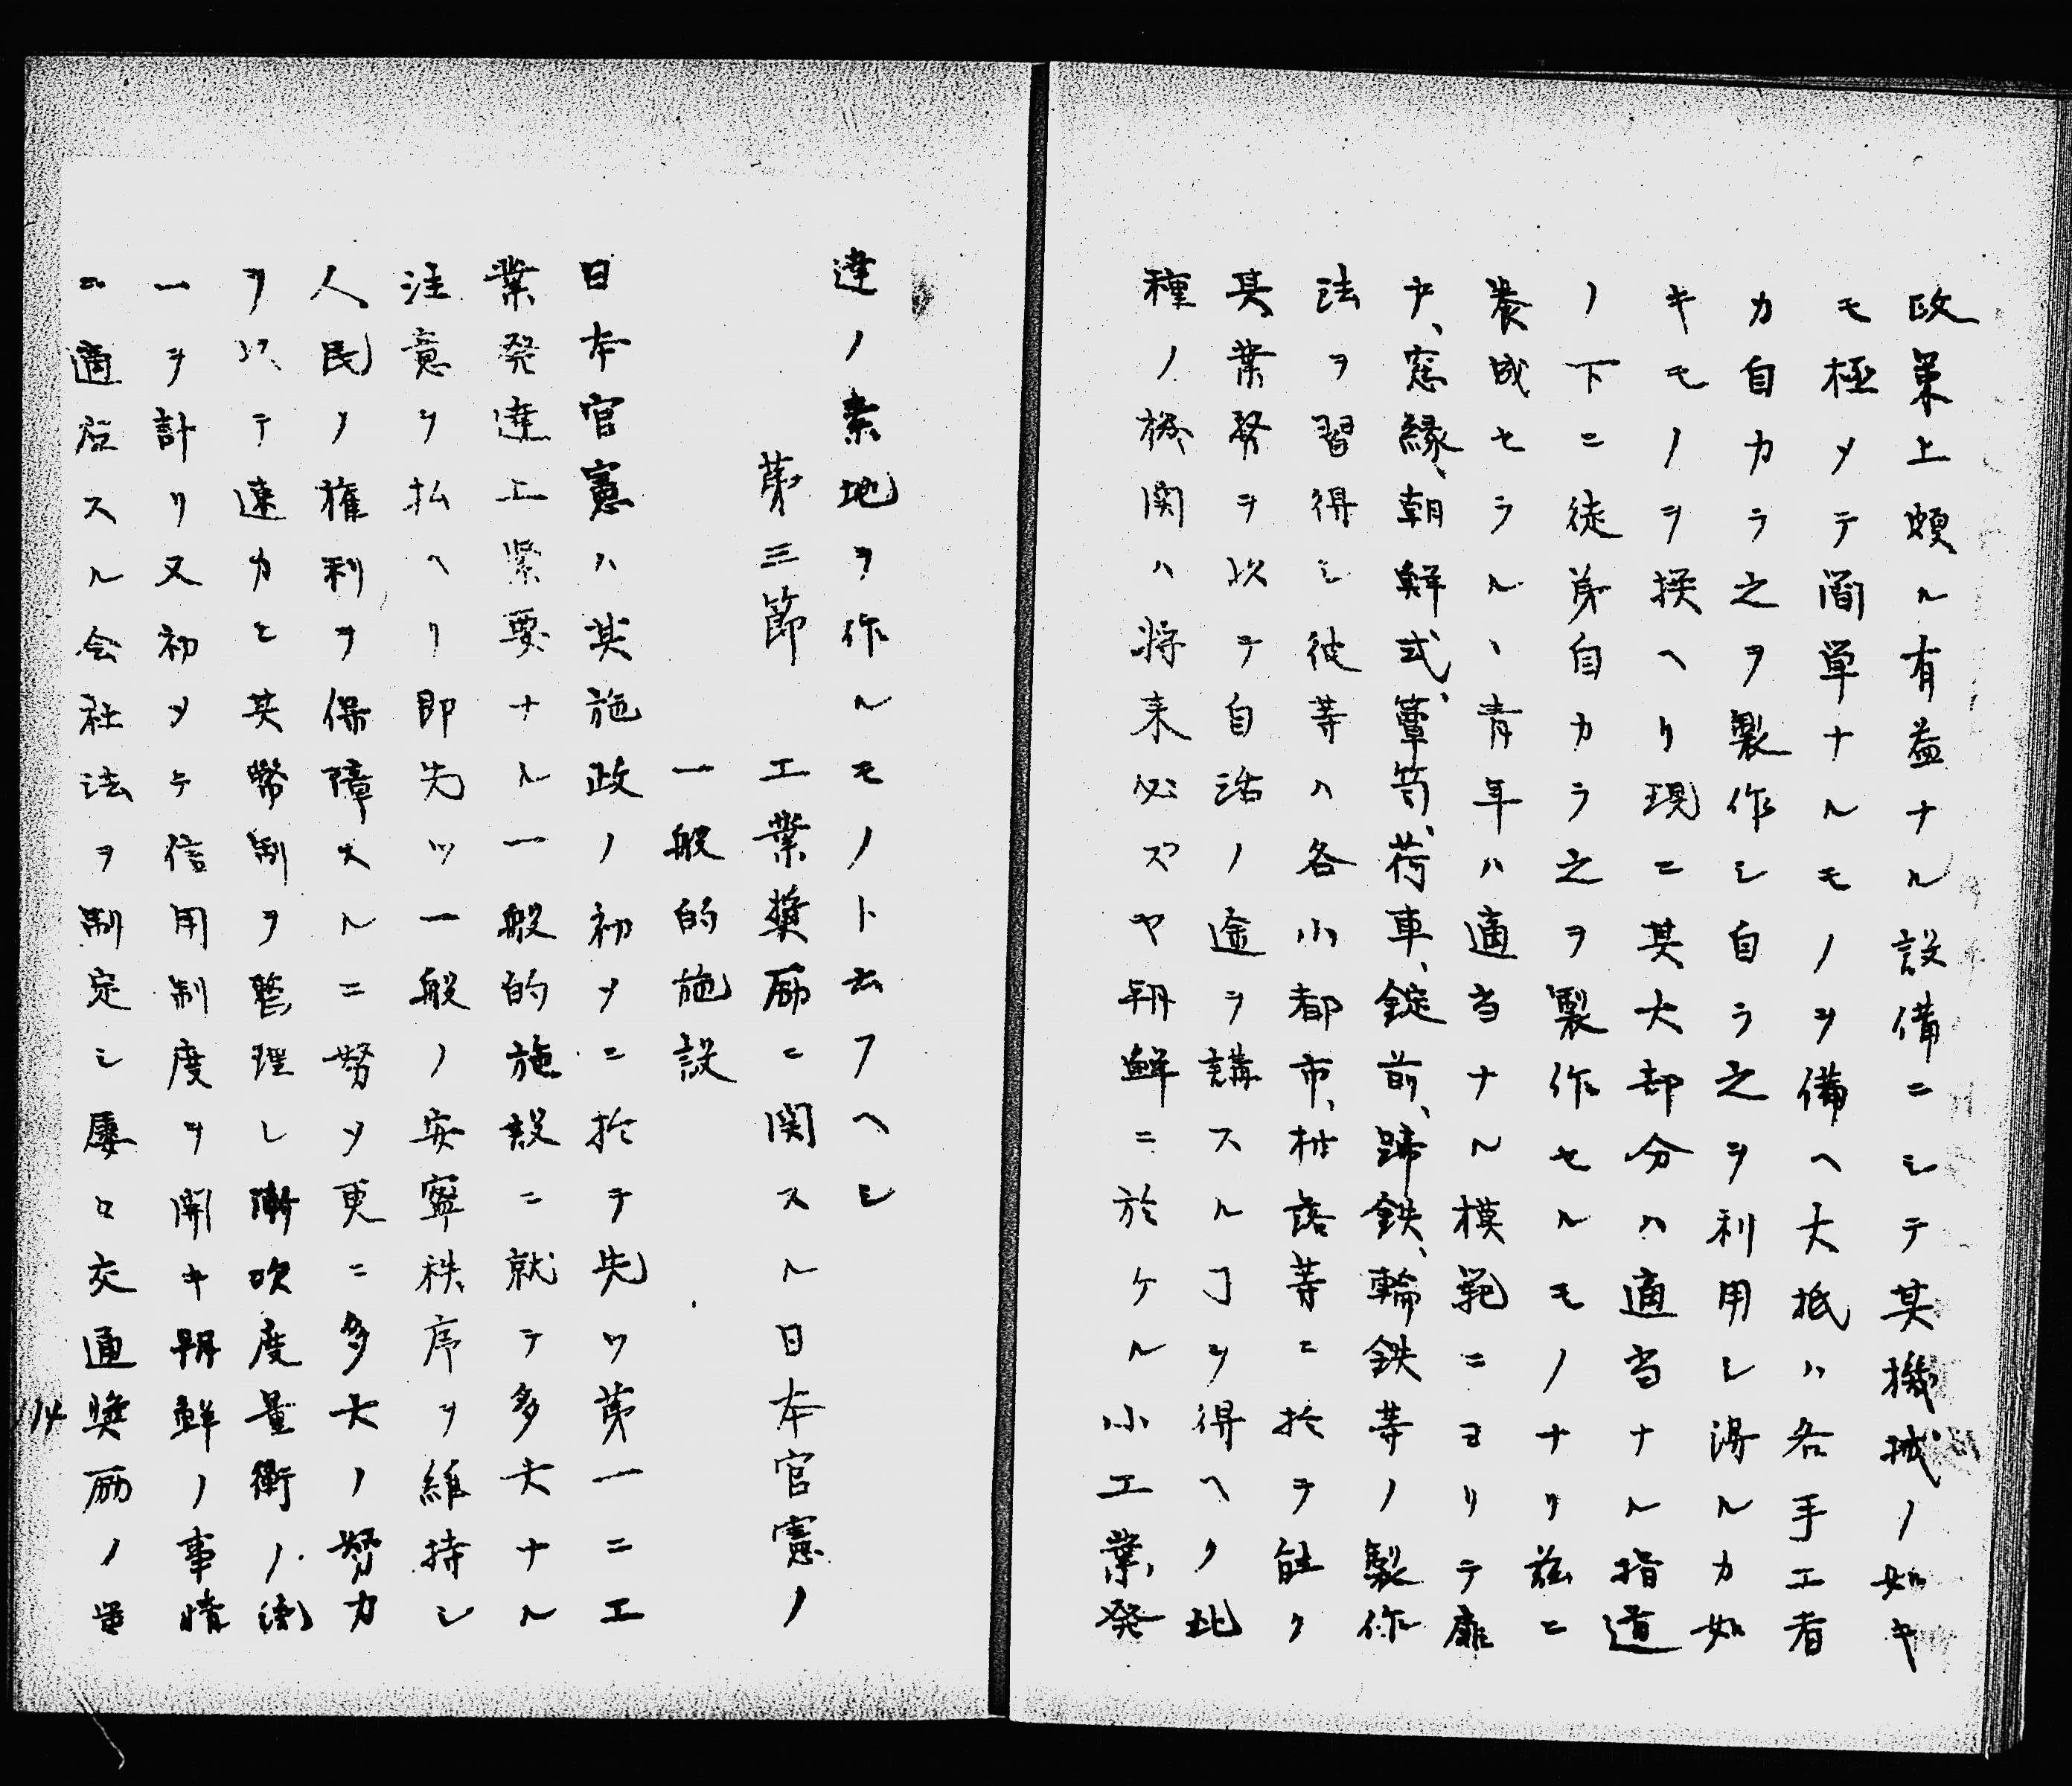 政策上頗ル有益ナル設備ニシテ其機械ノ如キ
モ極メテ簡単ナルモノヲ備ヘ大抵ハ各手工者
カ自カラ之ヲ製作シ自ラ之ヲ利用シ得ルカ如
キモノヲ撰ヘリ現ニ其大部分ハ適当ナル指道
ノ下ニ徒弟自カラ之ヲ製作セルモノナリ茲ニ
養成セラルヽ青年ハ適当ナル模範ニヨリテ扉
戸、窓縁、朝鮮式簟笥、荷車、錠前、蹄鉄、輪鉄等ノ製作
法ヲ習得シ彼等ハ各小都市、村落等ニ於テ能ク
其業務ヲ以テ自活ノ途ヲ講スルヿヲ得ヘク此
種ノ機関ハ将来必ズヤ朝鮮ニ於ケル小工業発
達ノ素地ヲ作ルモノト云フヘシ
第三節　工業奨励ニ関スル日本官憲ノ
一般的施設
日本官憲ハ其施政ノ初メニ於テ先ツ第一ニ工
業発達上緊要ナル一般的施設ニ就テ多大ナル
注意ヲ払ヘリ即先ツ一般ノ安寧秩序ヲ維持シ
人民ノ権利ヲ保障スルニ努メ更ニ多大ノ努力
ヲ以テ速カニ其幣制ヲ整理シ漸次度量衡ノ統
一ヲ計リ又初メテ信用制度ヲ開キ朝鮮ノ事情
ニ適応スル会社法ヲ制定シ屢々交通奨励ノ
14